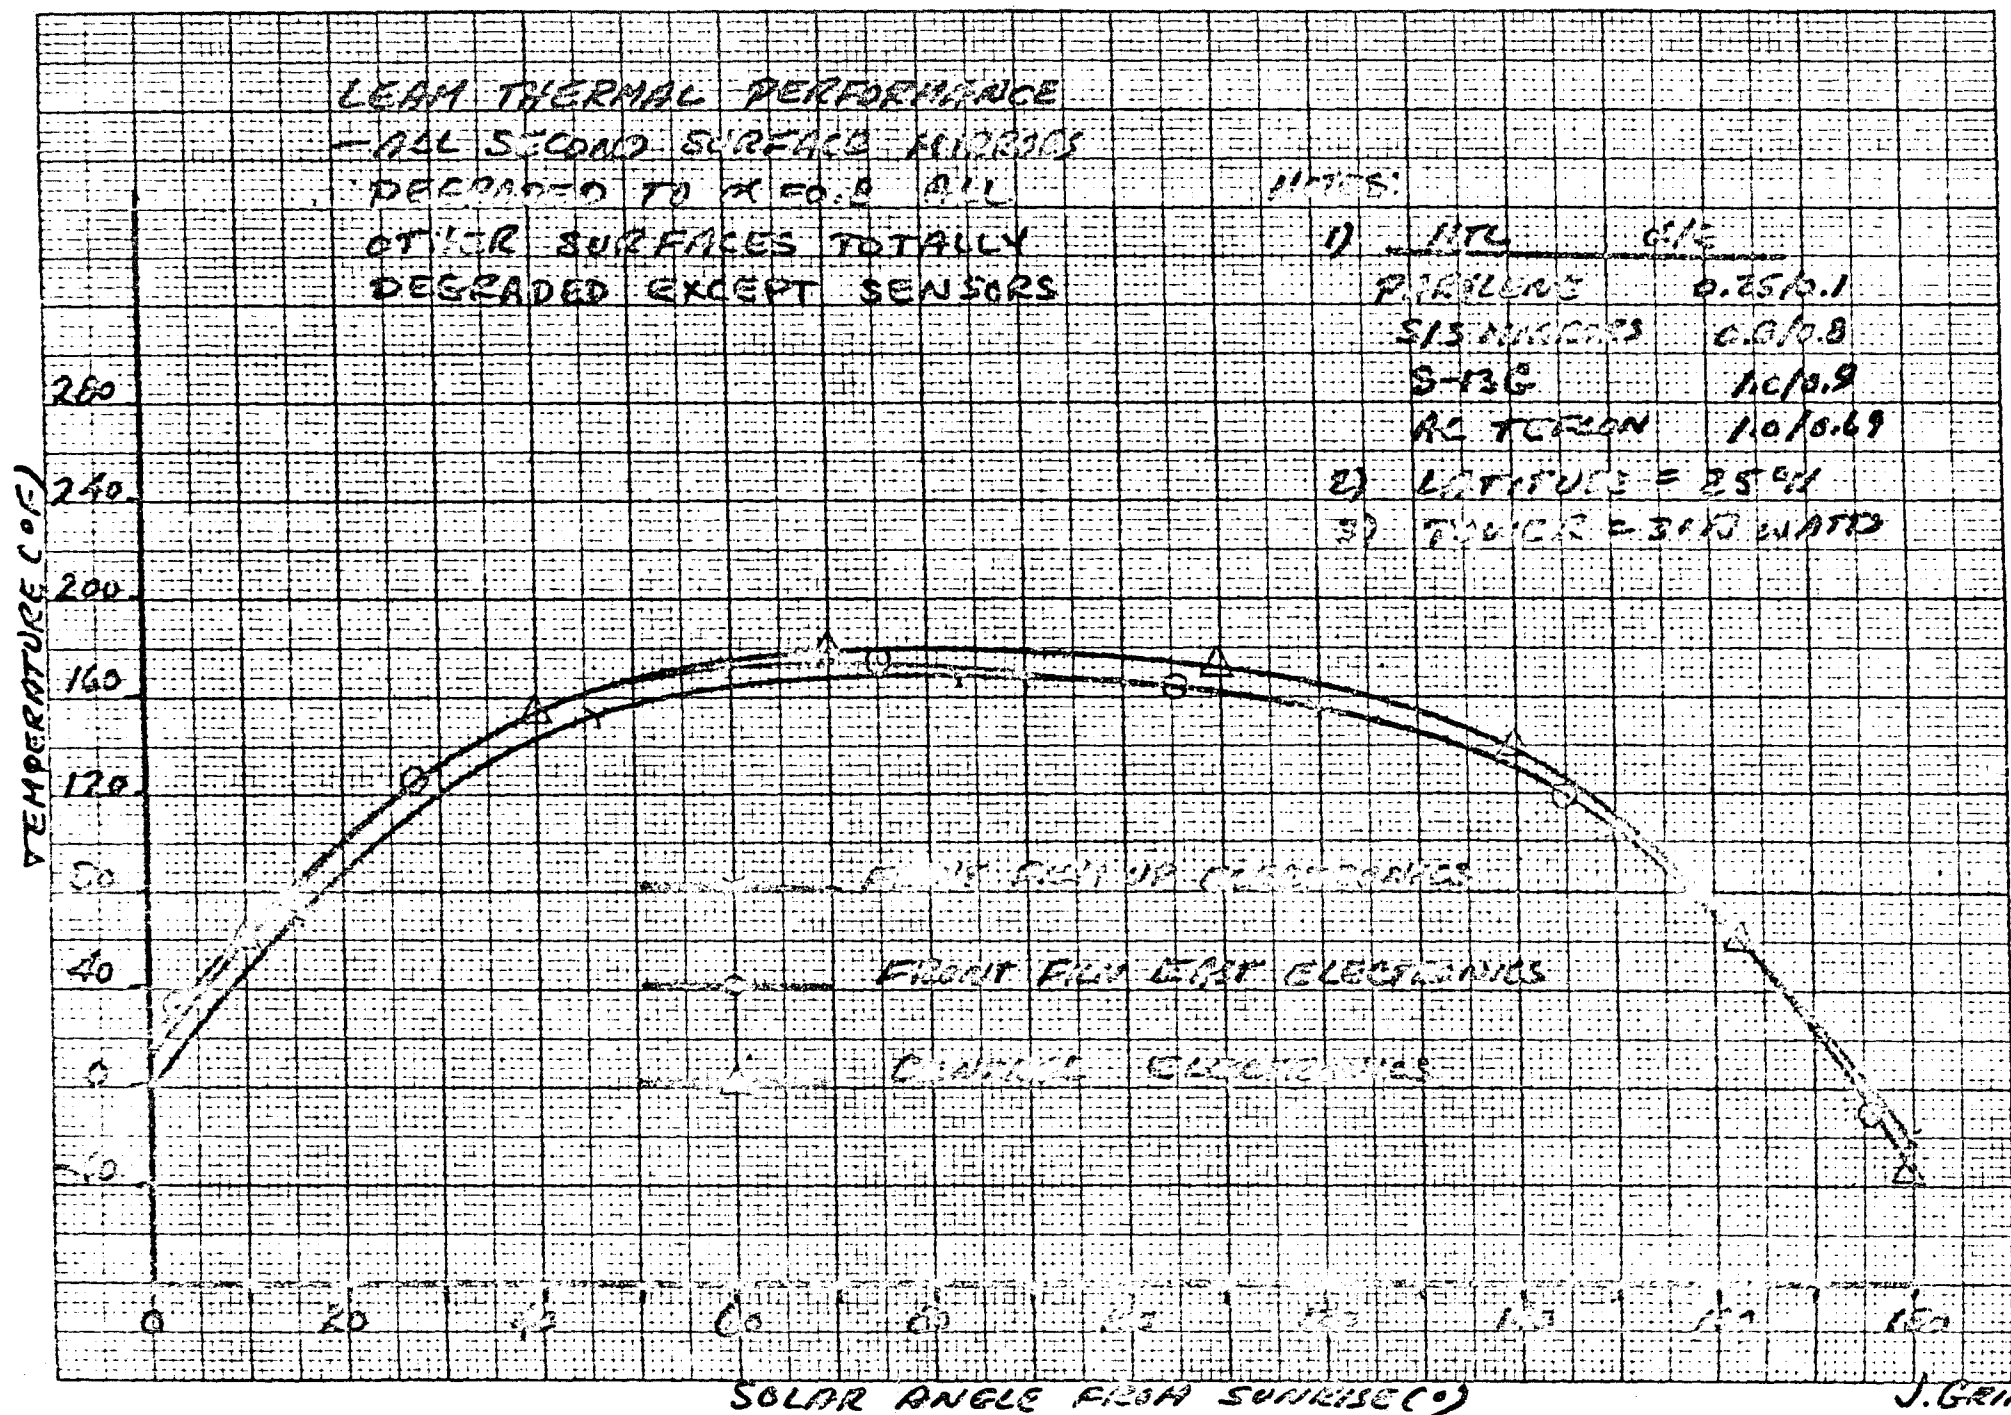 LEAM THERMAL PERFORMANCE
- ALL SECOND SURFACE MIRRORS
DEGRADED TO α = 0.8 ALL
OTHER SURFACES TOTALLY
DEGRADED EXCEPT SENSORS
NOTES:
1) MTL α/ε
PARYLENE 0.25/0.1
S/S MIRRORS 0.8/0.8
S-13G 1.0/0.9
AL TEFLON 1.0/0.69
2) LATITUDE =
3) POWER = WATTS
280
240
200
160
120
80
40
0
-40
TEMPERATURE (°F)
FRONT FILM UP ELECTRONICS
FRONT FILM EAST ELECTRONICS
CENTRAL ELECTRONICS
0 20 40 60 80 180
SOLAR ANGLE FROM SUNRISE (°)
J. GRI